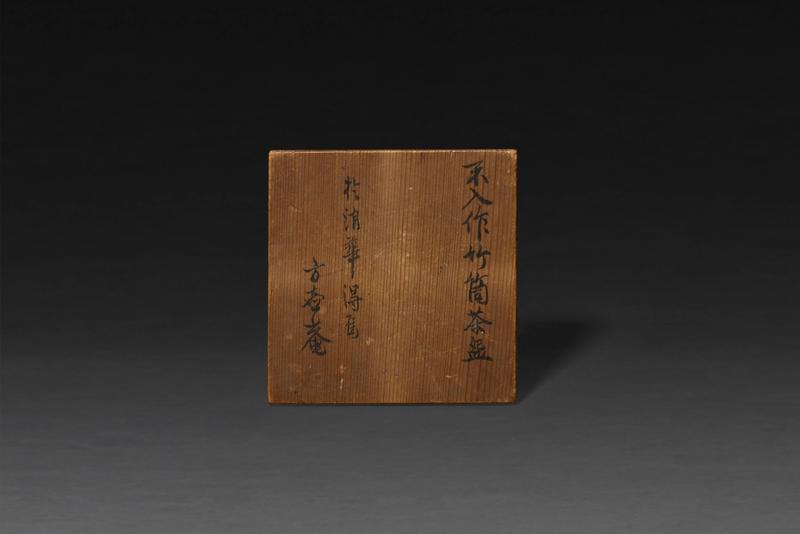 不入作竹筒茶盌
於清華得焉
方壺菴